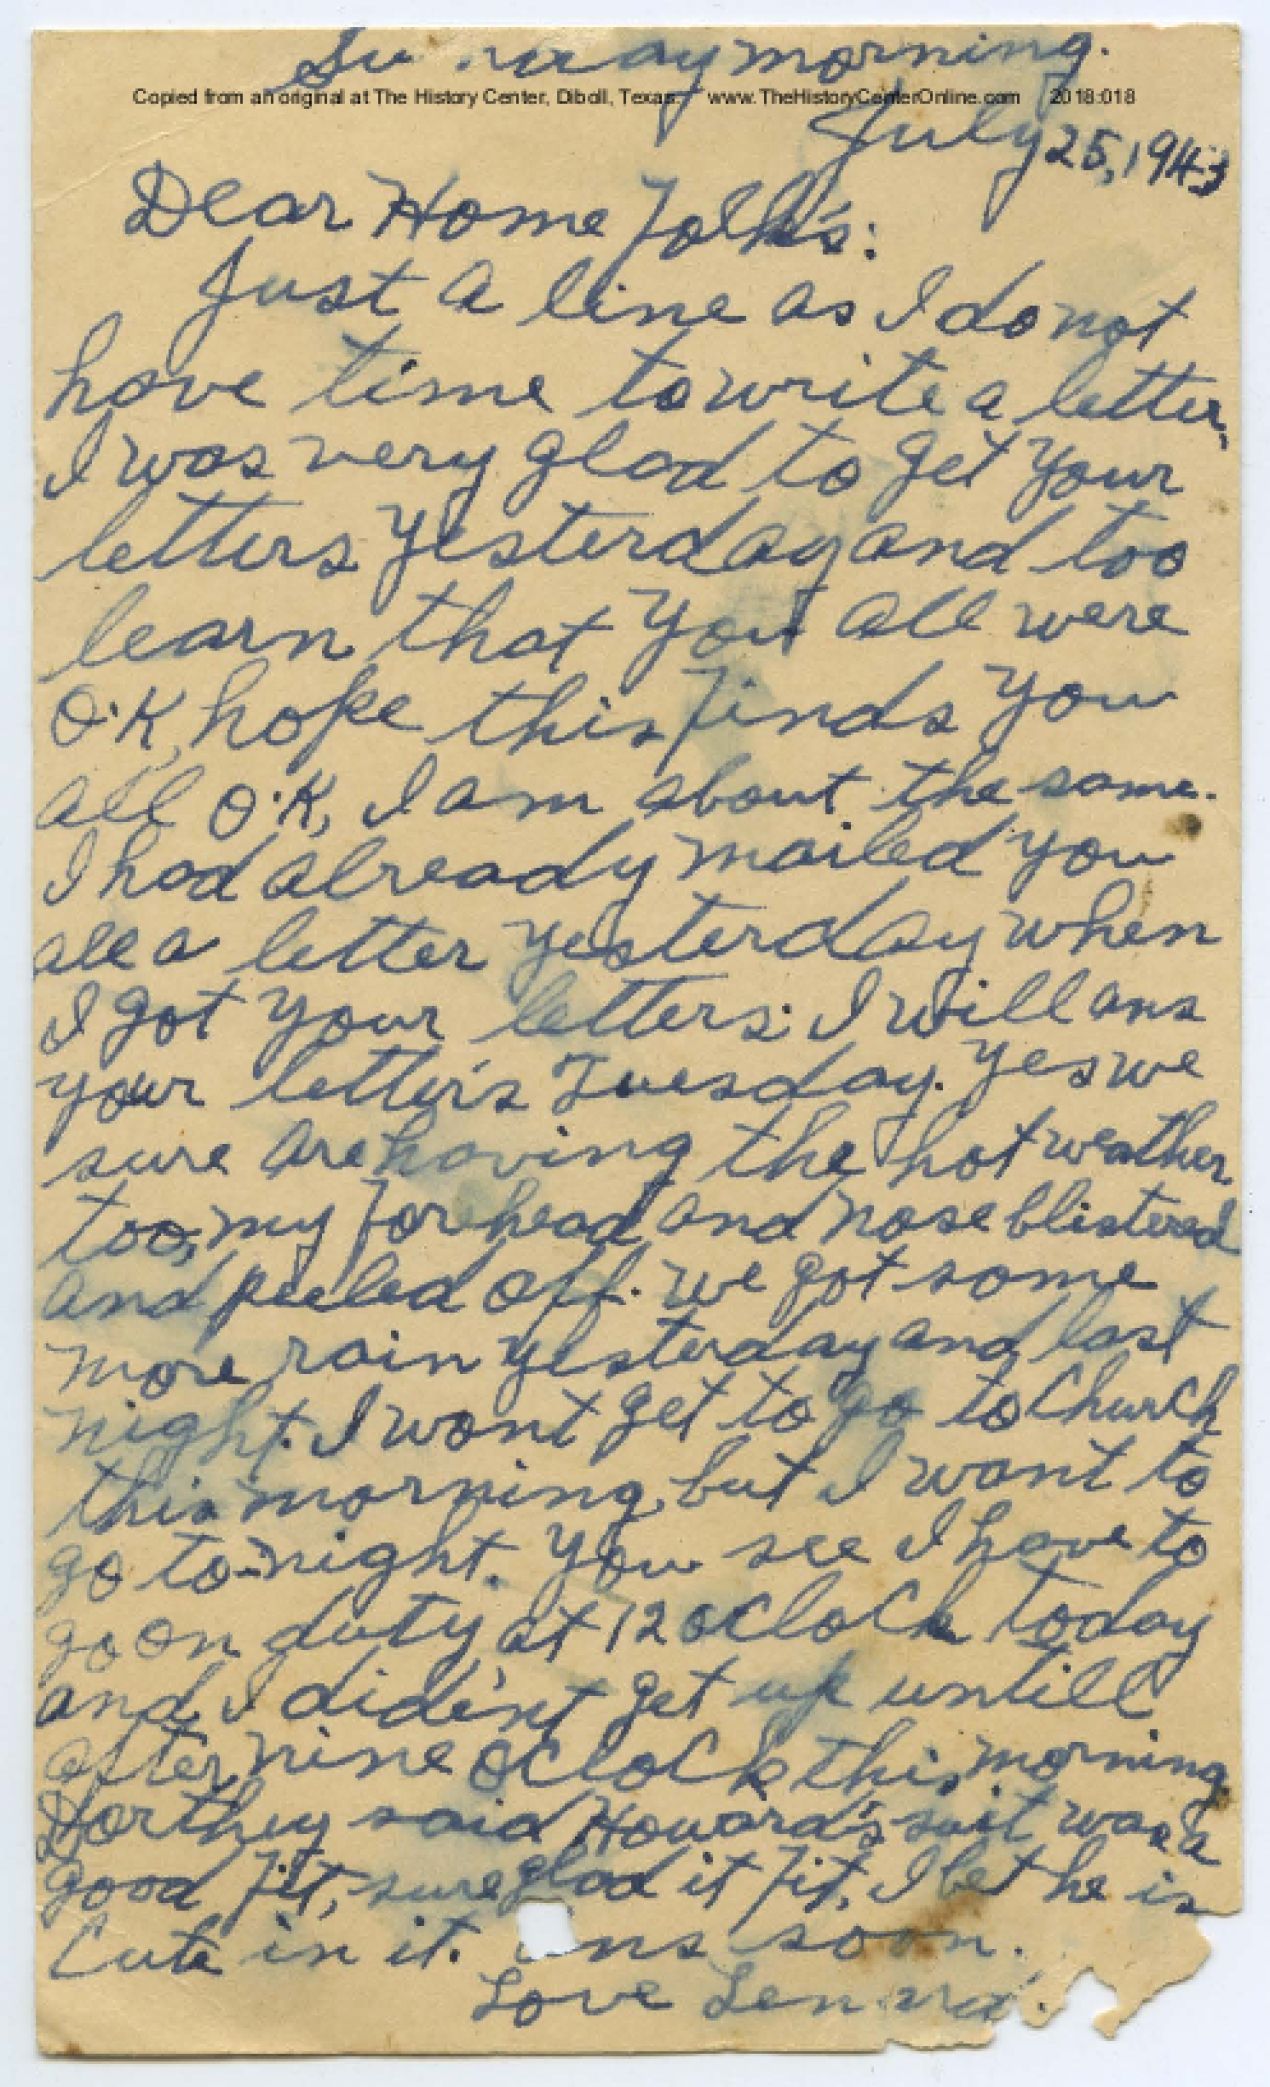 Sunday morning.
Copied from an original at The History Center, Diboll, Texas. www.TheHistoryCenterOnline.com 2018:018
July 25, 1943
Dear Home Folk's:
Just a line as I do not
have time to write a letter,
I was very glad to get your
letters yesterday and too
learn that you all were
O.K, hope this finds you
all O.K, I am about the same.
I had already mailed you
all a letter yesterday when
I got your letters. I will ans
your letter's Tuesday. Yes we
sure are having the hot weather
too, my forehead and nose blistered
and peeled off. we got some
more rain yesterday and last
night. I wont get to go to church
this morning, but I want to
go to-night. You see I have to
go on duty at 12 oclock today
and I dide'nt get up untill
after nine oclock this morning
Dorthey said Howard's suit was a
good fit, sure glad it fit, I bet he is
Cute in it. ans soon.
Love